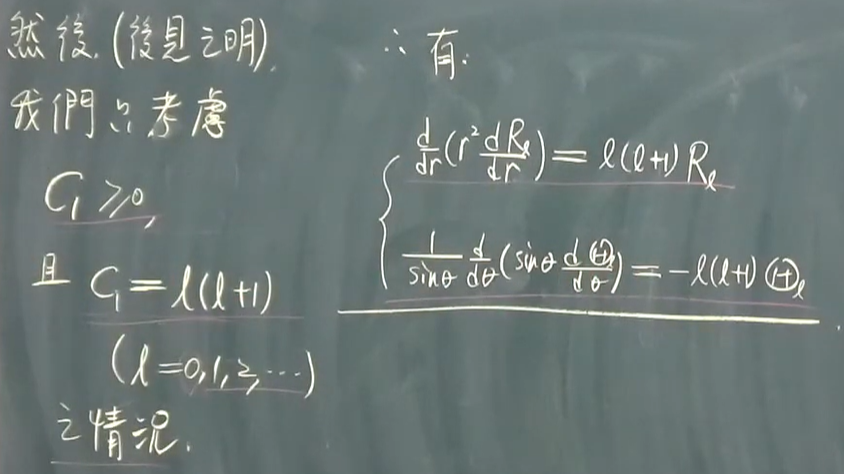 然後, (後見之明),
我們只考慮
C₁ ≥ 0,
且 C₁ = l(l+1)
(l = 0, 1, 2, ⋯)
之情況.
∴ 有:
d/dr (r² dRₗ/dr) = l(l+1) Rₗ
1/sinθ d/dθ (sinθ dⒽₗ/dθ) = −l(l+1) Ⓗₗ